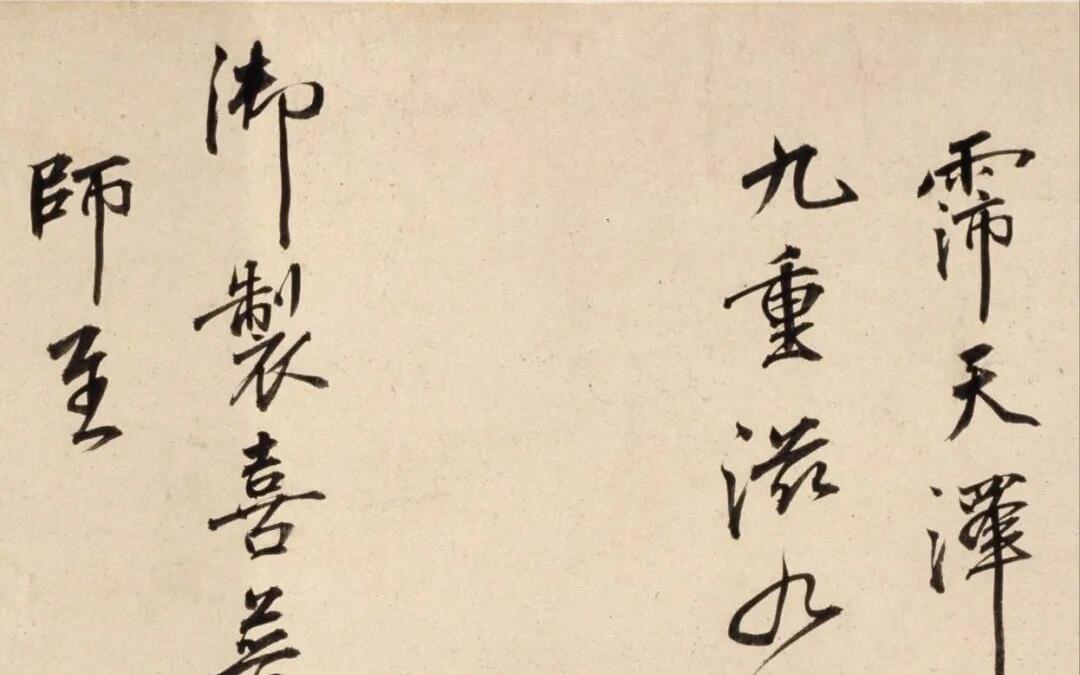 霈天澤
九重滋九
御製喜
師至